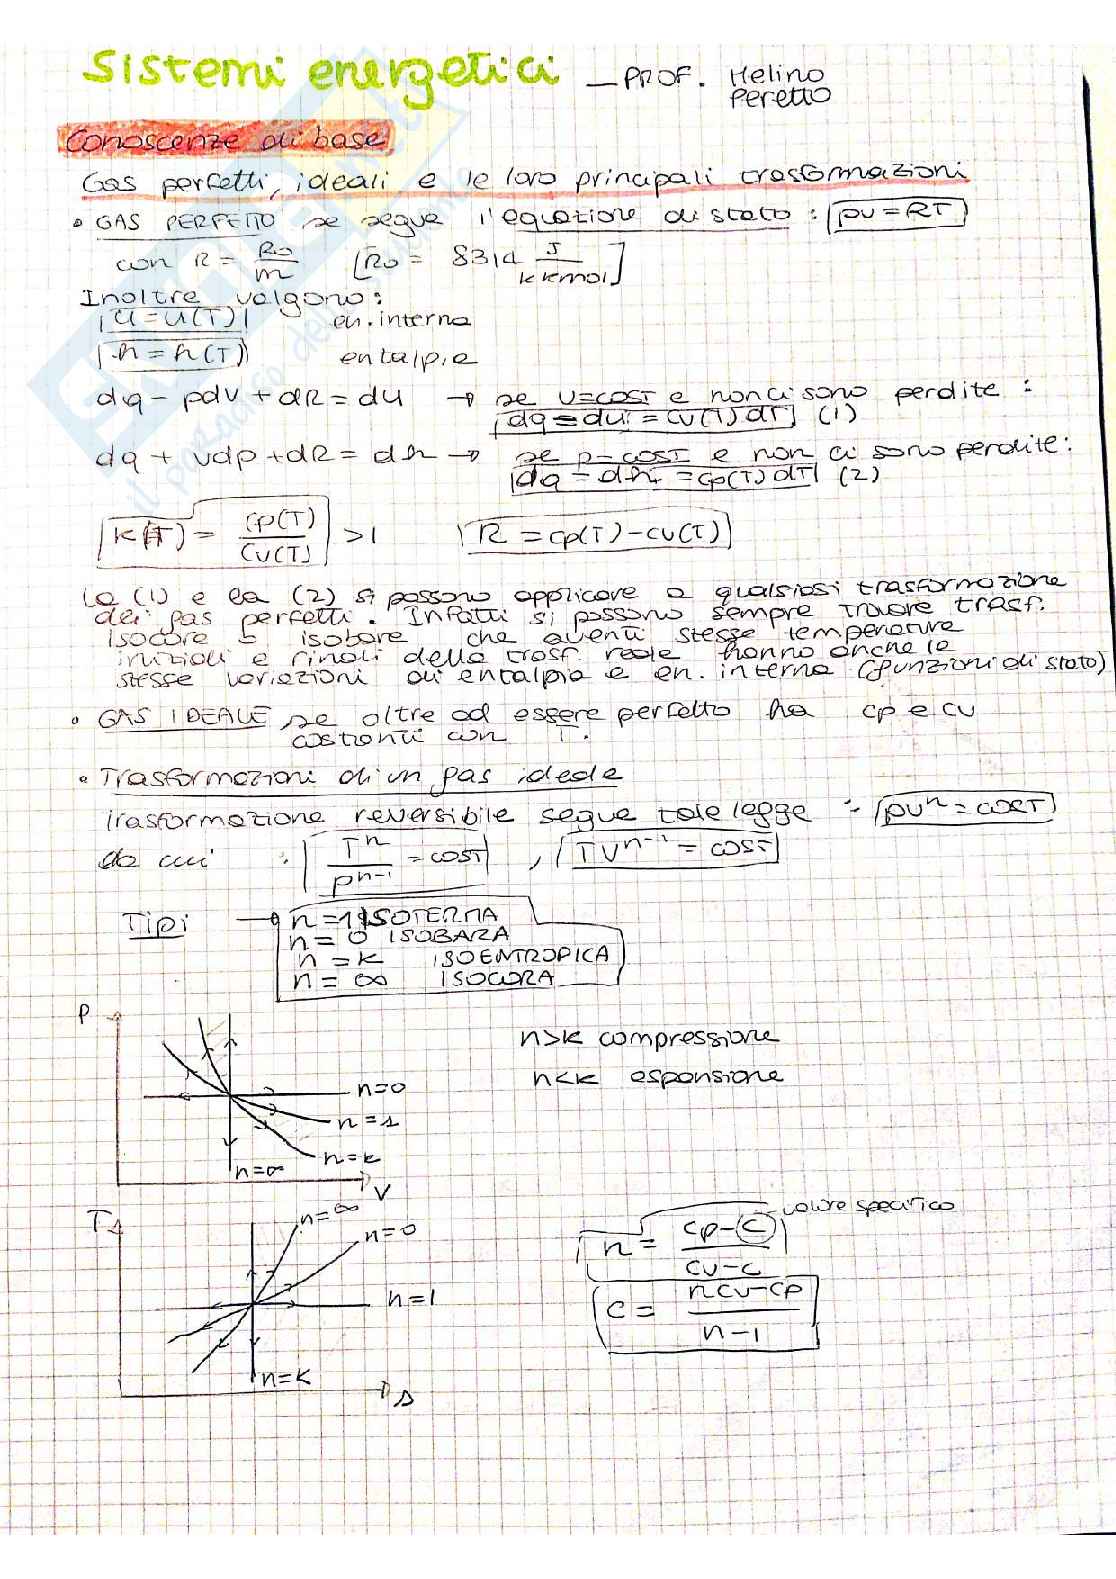 Sistemi energetici _ PROF. Melino
Peretto
Conoscenze di base
Gas perfetti, ideali e le loro principali trasformazioni
• GAS PERFETTO se segue l'equazione di stato : pv = RT
con R = Ro/m [Ro = 8314 J/k kmol]
Inoltre valgono:
u = u(T) en. interna
h = h(T) entalpia
dq - pdv + dR = du → se v=cost e non ci sono perdite :
dq = du = cv(T) dT (1)
dq + vdp + dR = dh → se p=cost e non ci sono perdite:
dq = dh = cp(T) dT (2)
k(T) = cp(T)/cv(T) >1 R = cp(T) - cv(T)
La (1) e la (2) si possono applicare a qualsiasi trasformazione
dei gas perfetti. Infatti si possono sempre trovare trasf.
isocore o isobare che aventi stesse temperature
iniziali e finali della trasf. reale hanno anche le
stesse variazioni di entalpia e en. interna (funzioni di stato)
• GAS IDEALE se oltre ad essere perfetto ha cp e cv
costanti con T.
• Trasformazioni di un gas ideale
trasformazione reversibile segue tale legge : pvⁿ = cost
da cui : Tⁿ/pⁿ⁻¹ = cost , Tvⁿ⁻¹ = cost
Tipi → n = 1 ISOTERMA
n = 0 ISOBARA
n = k ISOENTROPICA
n = ∞ ISOCORA
P
n>k compressione
n<k espansione
n=0
n=1
n=k
n=∞
V
T
n=∞
n=0
n=1
n=k
s
calore specifico
n = cp-c/cv-c
c = ncv-cp/n-1